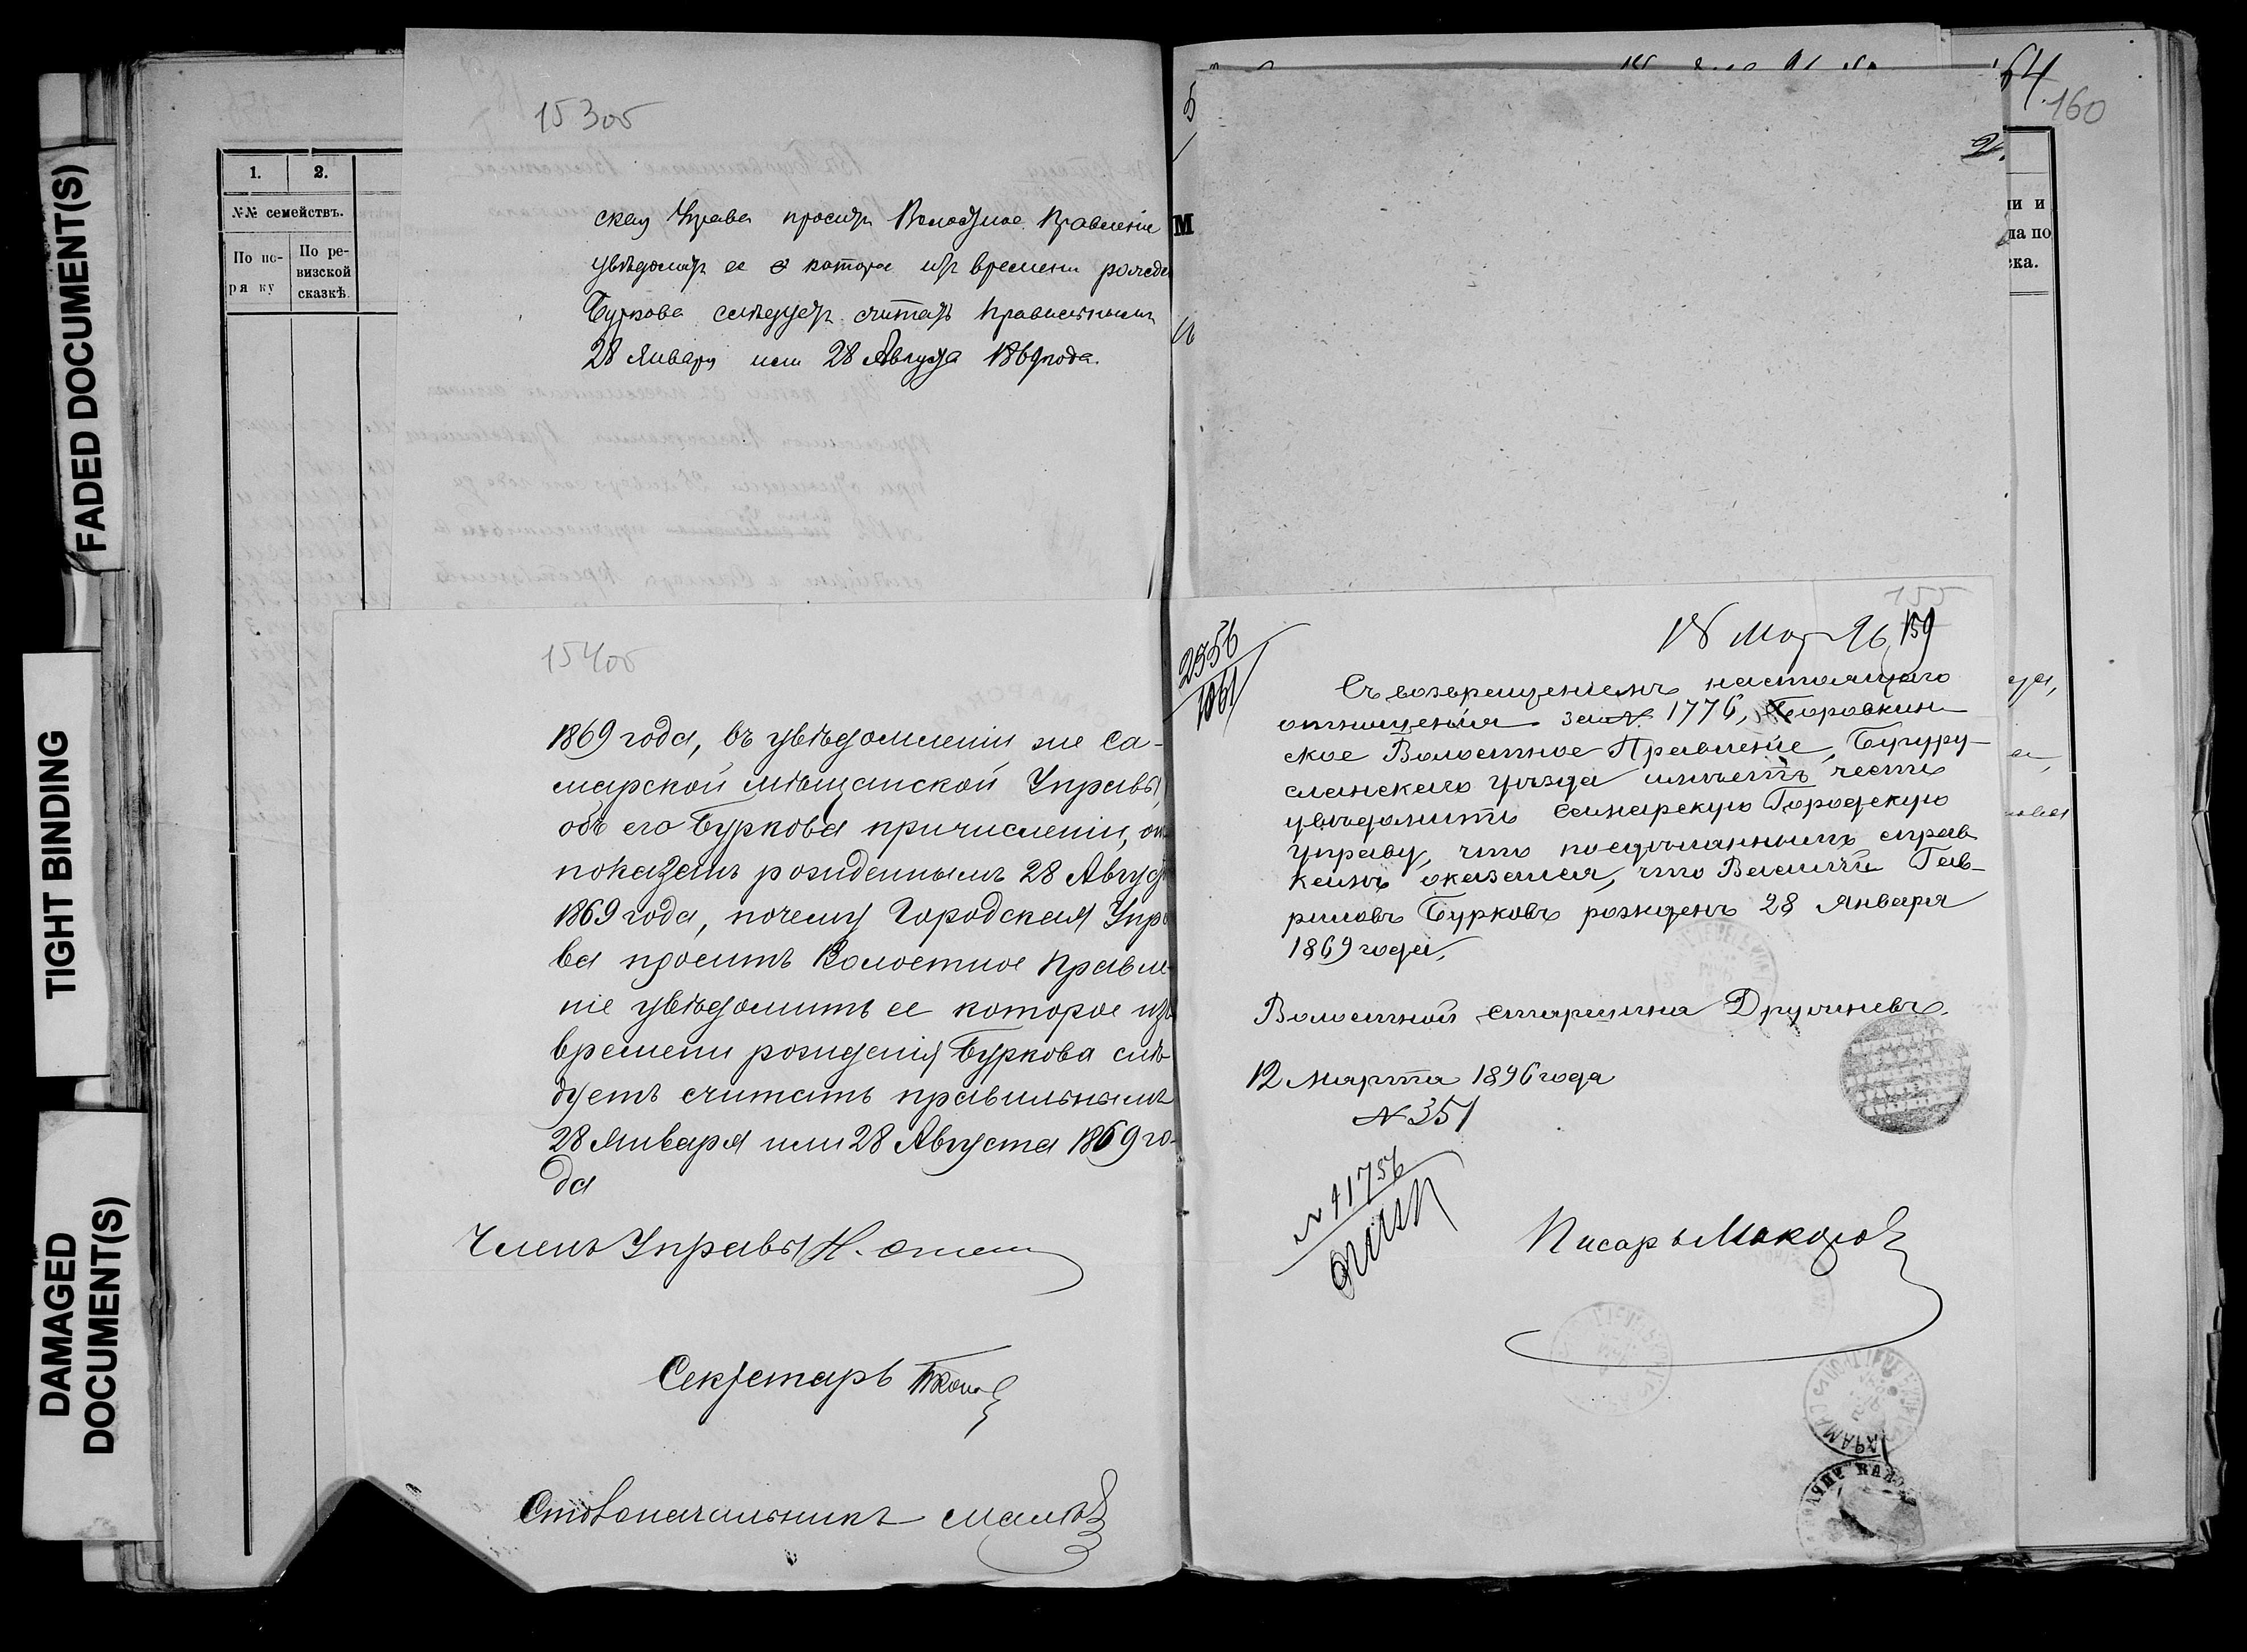 FADED DOCUMENT(S)
TIGHT BINDING
DAMAGED
DOCUMENT(S)
1. 2.
№№ семействъ.
По по-
ря ку
По ре-
визской
сказкѣ.
153об
ская Управа проситъ Волостное Правленіе
увѣдомить ее которое изъ времени рожде
Буркова слѣдуетъ считать правильнымъ
28 Января или 28 Августа 1869 года.
154об
1869 года, въ увѣдомленіи же Са-
марской мѣщанской Управы,
объ его Буркова причисленіи, он
показанъ рожденнымъ 28 Августа
1869 года, почему Городская Упра
ва проситъ Волостное Правле
ніе увѣдомить ее которое изъ
времени рожденія Буркова слѣ
дуетъ считать правильнымъ
28 Января или 28 Августа 1869 го-
да
Членъ Управы Н.
Секретарь
Столоначальникъ
64
160
2.
М
ли и
па по
ска.
155
18 Мар 96 159
2356
1061
Съ возвращеніемъ настоящаго
отношенія за № 1776, Боровкин-
ское Волостное Правленіе, Бугуру-
сланскаго уѣзда имѣетъ честь
увѣдомить Самарскую Городскую
Управу, что по сдѣланнымъ справ
камъ оказалось, что Василій Гав-
риловъ Бурковъ рожденъ 28 Января
1869 года.
Волостной старшина Дружиневъ.
12 Марта 1896 года
№ 351
№ 41756
Писарь